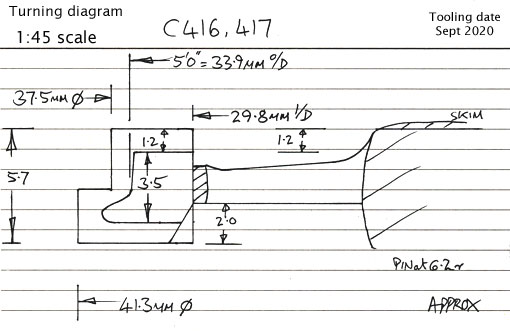 Turning diagram
1:45 scale
C416, 417
Tooling date
Sept 2020
5'0" = 33.9MM O/D
37.5MM Ø
29.8MM I/D
SKIM
1.2
1.2
5.7
3.5
2.0
PIN at 6.2 r
41.3MM Ø
APPROX